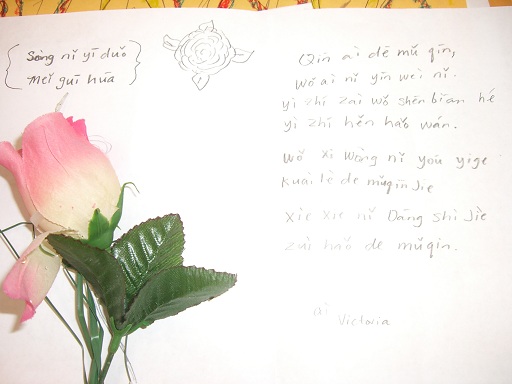 Sòng nǐ yī duǒ
Méi guī hūa
Qīn ài dē mǔ qīn,
wǒ ài nǐ yīn wèi nǐ.
yì zhí zài wǒ shēn biān hé
yì zhí hěn hǎo wán.
wǒ xī wàng nǐ yǒu yīge
kuài lè de mǔqīn jíe
xìe xìe nǐ Dāng shì Jiè
zuì hǎo de mǔqīn.
ài
Victoria